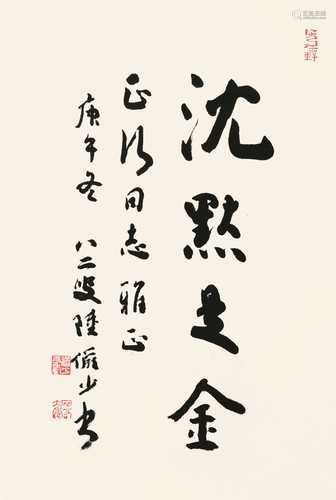 沈默是金
正行同志雅正
庚午冬 八二叟陆俨少书